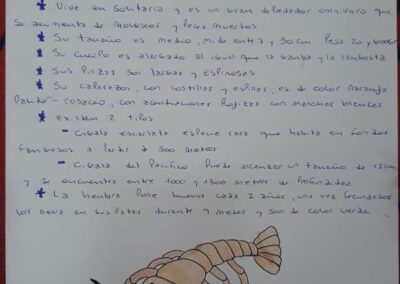 * Vive en solitario y es un gran depredador omnivoro que
se alimenta de moluscos y peces muertos
* Su tamaño es medio, mide entre 7 y 30 cm pesa 20 y 600gr
* Su cuerpo es alargado al igual que la gamba y la langosta
* Sus pinzas son largas y espinosas
* Su caparazon, con costillas y espinas, es de color naranja
palido - rosaceo, con zonas rojizas con manchas blancas
* existen 2 tipos
- Cigala escarlata: especie rara que habita en fondos
fangosos a partir de 500 metros
- Cigala del Pacifico: Puede alcanzar un tamaño de 15cm
y se encuentra entre 1000 y 1300 metros de profundidad
* La hembra pone huevos cada 2 años, una vez fecundados
los lleva en sus patas durante 9 meses y son de color verde